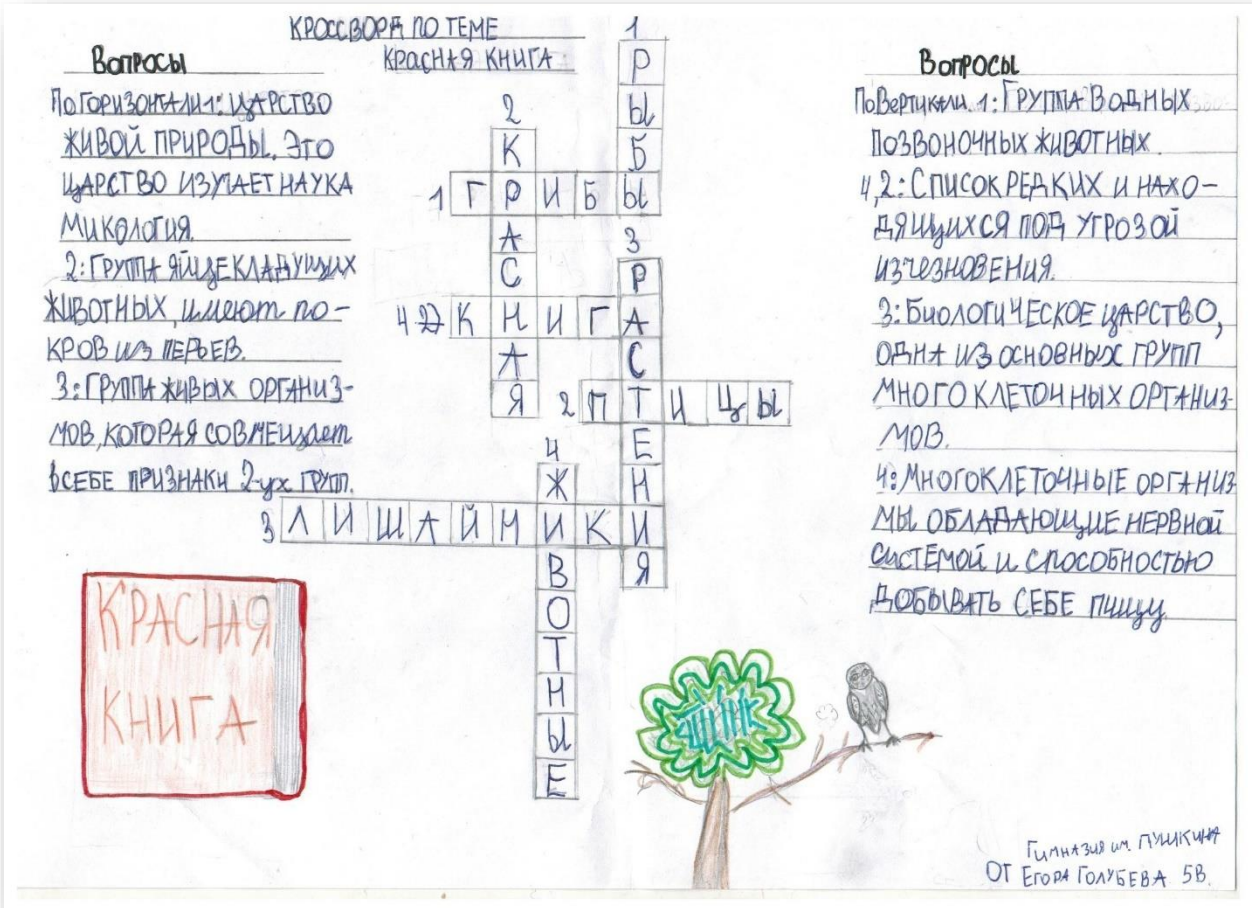 КРОССВОРД ПО ТЕМЕ
КРАСНАЯ КНИГА
Вопросы
По ГОРИЗОНТАЛИ 1: ЦАРСТВО
ЖИВОЙ ПРИРОДЫ. Это
ЦАРСТВО ИЗУЧАЕТ НАУКА
МИКОЛОГИЯ.
2: ГРУППА ЯЙЦЕКЛАДУЩИХ
ЖИВОТНЫХ, имеют по-
КРОВ из ПЕРЬЕВ.
3: ГРУППА ЖИВЫХ ОРГАНИЗ-
МОВ, КОТОРАЯ СОВМЕЩАЕТ
В СЕБЕ ПРИЗНАКИ 2-ух ГРУПП.
1
РЫБЫ
2
КРАСНАЯ
1 ГРИБЫ
3
РАСТЕНИЯ
4 2) КНИГА
2 ПТИЦЫ
4
ЖИВОТНЫЕ
3 ЛИШАЙНИКИ
Вопросы
По Вертикали. 1: ГРУППА ВОДНЫХ
ПОЗВОНОЧНЫХ ЖИВОТНЫХ.
4,2: СПИСОК РЕДКИХ И НАХО-
ДЯЩИХСЯ ПОД УГРОЗОЙ
ИЗЧЕЗНОВЕНИЯ.
3: БИОЛОГИЧЕСКОЕ ЦАРСТВО,
ОДНА ИЗ ОСНОВНЫХ ГРУПП
МНОГОКЛЕТОЧНЫХ ОРГАНИЗ-
МОВ.
4: МНОГОКЛЕТОЧНЫЕ ОРГАНИЗ
МЫ ОБЛАДАЮЩИЕ НЕРВНОЙ
СИСТЕМОЙ и СПОСОБНОСТЬЮ
ДОБЫВАТЬ СЕБЕ ПИЩУ
КРАСНАЯ
КНИГА
Гимназия им. ПУШКИНА
ОТ ЕГОРА ГОЛУБЕВА 5В.